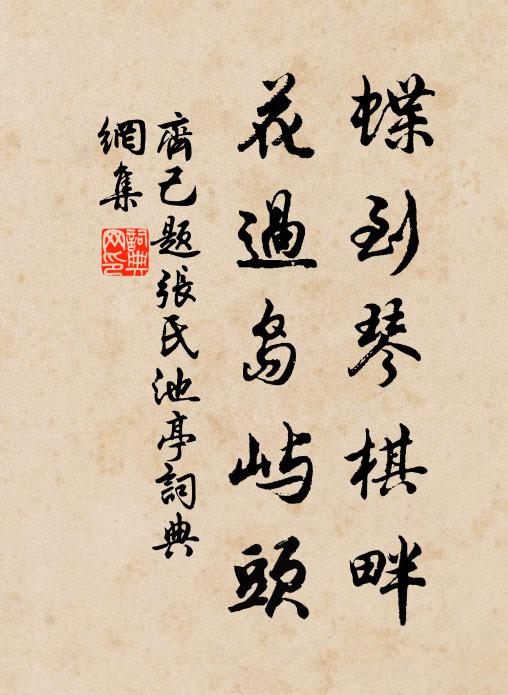 蝶到琴棋畔
花過島屿頭
齊己题張氏池亭詞典
網集
詞典网印